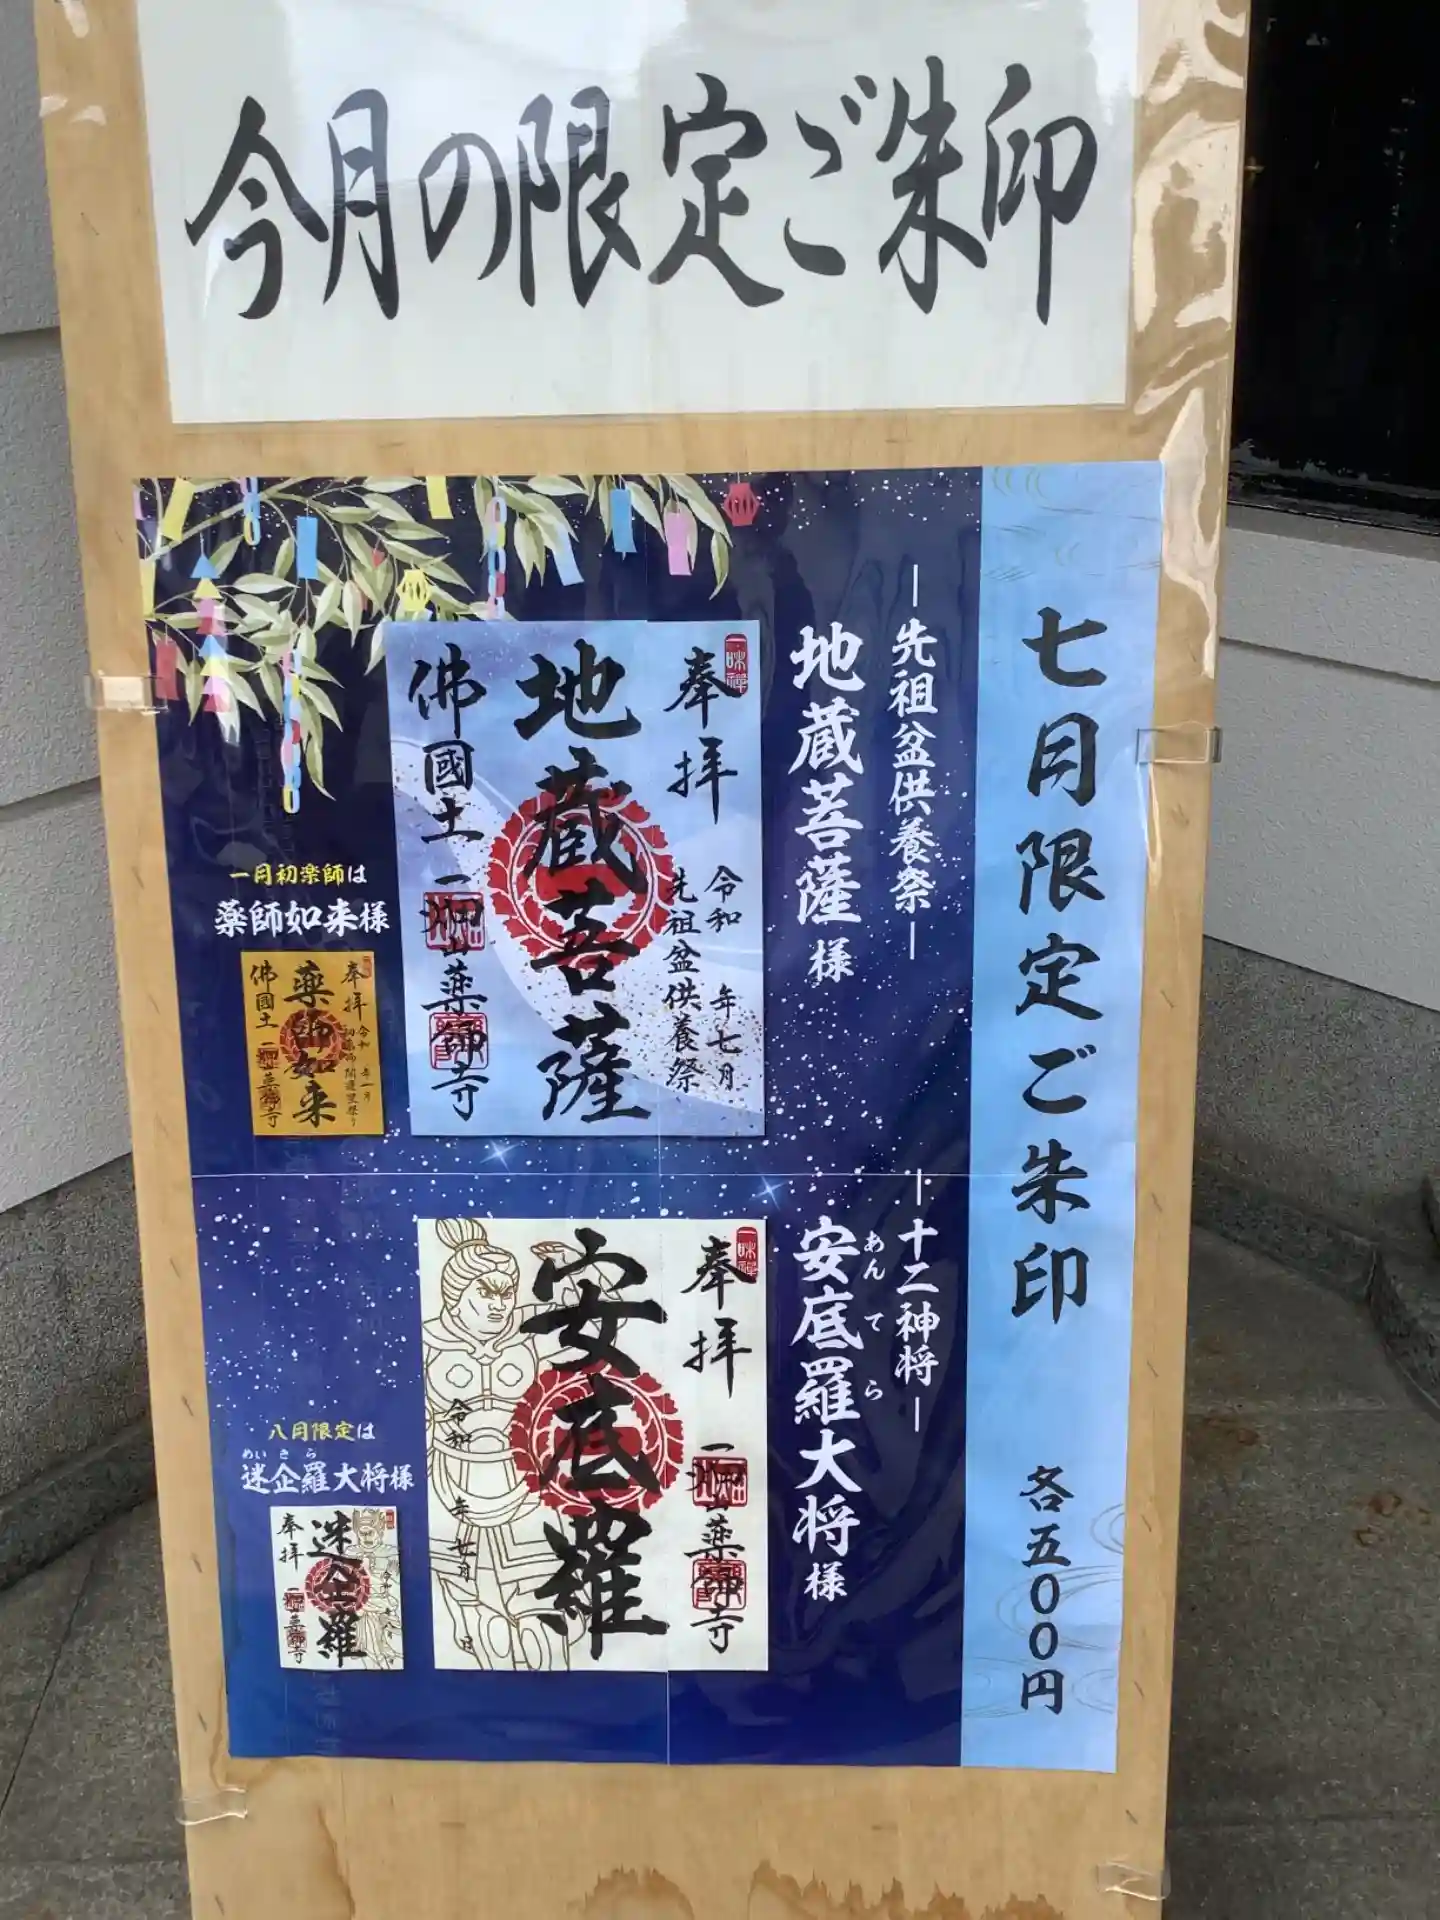 今月の限定ご朱印
七月限定ご朱印 各五〇〇円
―先祖盆供養祭―
地蔵菩薩様
一味禅
奉拝
令和 年七月
先祖盆供養祭
地蔵菩薩
佛國土 一畑山薬師寺
一月初薬師は
薬師如来様
奉拝
令和 年一月
薬師如来
佛國土 一畑山薬師寺
―十二神将―
安底羅大将様
あんてら
一味禅
奉拝
一畑山薬師寺
安底羅
令和 年七月 日
八月限定は
めいきら
迷企羅大将様
迷企羅
奉拝
一畑山薬師寺